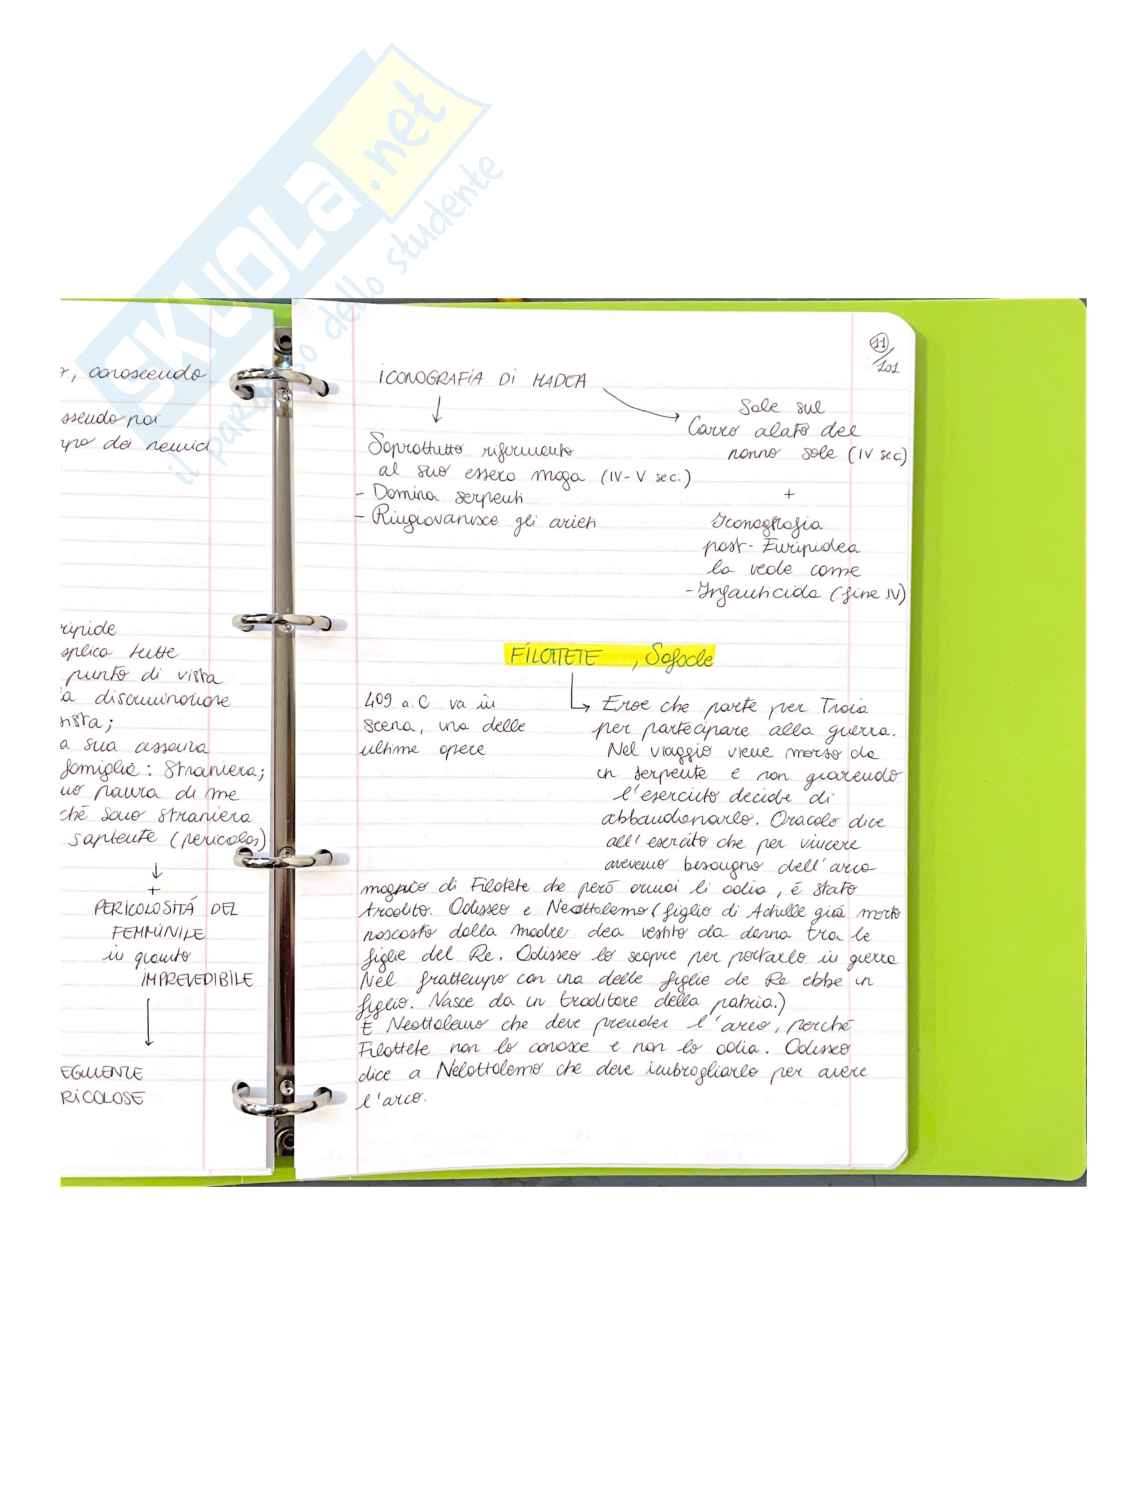 SKUOLA.net
il paradiso dello studente
r, conoscendo
ssendo poi
mpo dei nemici
ripide
splica tutte
punto di vista
ia discriminazione
nista;
a sua assenza
famiglia: Straniera;
uo paura di me
ché sono straniera
sapiente (pericolosi)
+
PERICOLOSITÁ DEL
FEMMINILE
in quanto
IMPREVEDIBILE
EGUENTE
RICOLOSE
11/101
ICONOGRAFIA DI MADEA
Soprattutto riferimento
al suo essere maga (IV-V sec.)
- Domina serpenti
- Ringiovanisce gli arieti
Sale sul
Carro alato del
nonno sole (IV sec)
+
Iconografia
post-Euripidea
la vede come
- Infanticida (fine IV)
FILOTTETE , Sofocle
409 a.C va in
scena, una delle
ultime opere
Eroe che parte per Troia
per partecipare alla guerra.
Nel viaggio viene morso da
un serpente e non guarendo
l'esercito decide di
abbandonarlo. Oracolo dice
all'esercito che per vincere
avevano bisogno dell'arco
magico di Filotete che però ormai li odia, é stato
tradito. Odisseo e Neottolemo (figlio di Achille già morto
nascosto dalla madre dea vestito da donna tra le
figlie del Re. Odisseo lo scopre per portarlo in guerra
Nel frattempo con una delle figlie de Re ebbe un
figlio. Nasce da un traditore della patria.)
É Neottolemo che deve prender l'arco, perché
Filottete non lo conosce e non lo odia. Odisseo
dice a Nelottolemo che deve imbrogliarlo per avere
l'arco.